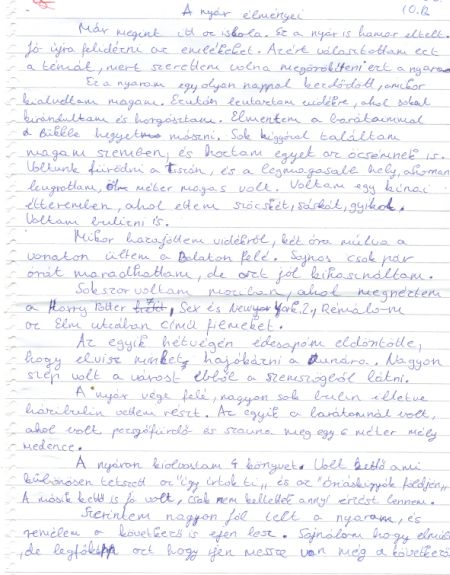 A nyár élményei
10.B
Már megint itt az iskola. Ez a nyár is hamar eltelt.
Jó újra felidézni az emlékeket. Azért választottam ezt
a témát, mert szerettem volna megörökíteni ezt a nyarat
Ez a nyaram egy olyan nappal kezdődött, amikor
kialudtam magam. Ezután leutaztam vidékre, ahol sokat
kirándultam és horgásztam. Elmentem a barátaimmal
a Bükkbe hegyet mászni. Sok kígyóval találtam
magam szemben, és hoztam egyet az öcsémnek is.
Voltunk fürödni a Tiszán, és a legmagasabb hely, ahonnan
leugrottam, öt méter magas volt. Voltam egy kínai
étteremben, ahol ettem szöcskét, sáskát, gyíkot.
Voltam bulizni is.
Mikor hazajöttem vidékről, két óra múlva a
vonaton ültem a Balaton felé. Sajnos csak pár
órát maradhattam, de azt jól kihasználtam.
Sokszor voltam moziban, ahol megnéztem
a Harry Potter 7, Sex és New York 2, Rémálom
az Elm utcában című filmeket.
Az egyik hétvégén édesapám eldöntötte,
hogy elvisz minket hajókázni a Dunára. Nagyon
szép volt a várost ebből a szemszögből látni.
A nyár vége felé, nagyon sok bulin illetve
házibulin vettem részt. Az egyik a barátomnál volt,
ahol volt pezsgőfürdő és szauna meg egy 6 méter mély
medence.
A nyáron kiolvastam 4 könyvet. Volt kettő ami
különösen tetszett az "így írtok ti" és az "óriáskígyók földjén"
A másik kettő is jó volt, csak nem keltettek annyi érzést bennem.
Szerintem nagyon jól telt a nyaram, és
remélem a következő is ilyen lesz. Sajnálom hogy elmúlt
, de legfőképp azt hogy ilyen messze van még a következő